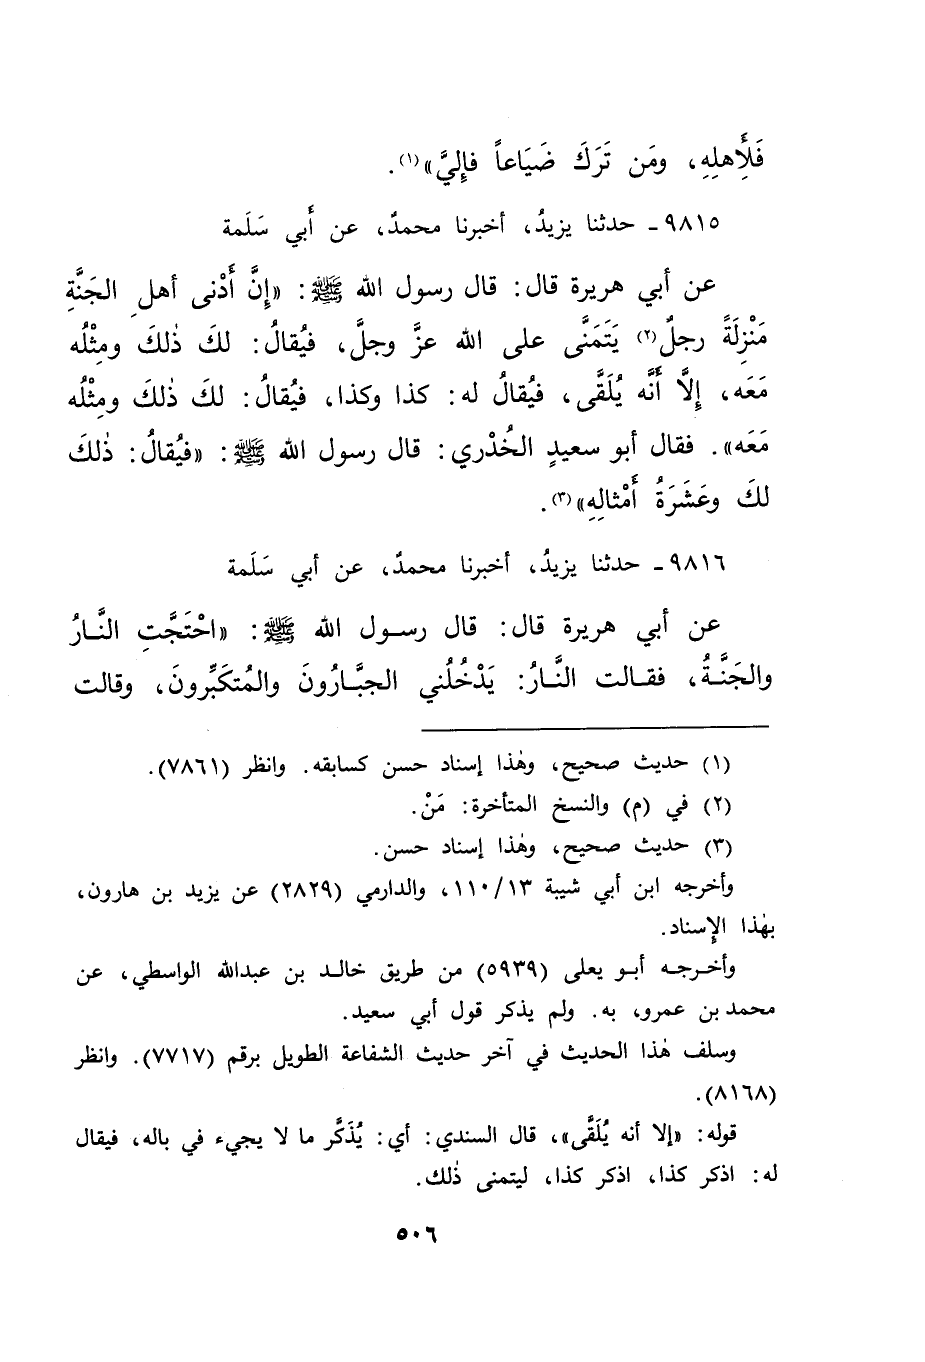 فَلِأَهلِهِ، ومَن تَرَكَ ضَيَاعاً فإِليَّ»(١).
٩٨١٥ـ حدثنا يزيدُ، أخبرنا محمدٌ، عن أَبي سَلَمة
عن أبي هريرة قال: قال رسول الله ﷺ: «إِنَّ أَدْنى أهلِ الجَنَّةِ
مَنْزِلَةً رجلٌ(٢) يَتَمَنَّى على الله عزَّ وجلَّ، فيُقالُ: لكَ ذٰلكَ ومِثْلُه
مَعَه، إِلَّا أَنَّه يُلَقَّى، فيُقالُ له: كذا وكذا، فيُقالُ: لكَ ذٰلكَ ومِثْلُه
مَعَه». فقال أبو سعيدٍ الخُدْري: قال رسول الله ﷺ: «فيُقالُ: ذٰلكَ
لكَ وعَشَرَةُ أَمْثالِهِ»(٣).
٩٨١٦ـ حدثنا يزيدُ، أخبرنا محمدٌ، عن أبي سَلَمة
عن أبي هريرة قال: قال رسول الله ﷺ: «احْتَجَّتِ النَّارُ
والجَنَّةُ، فقالت النَّارُ: يَدْخُلُني الجبَّارُونَ والمُتكَبِّرونَ، وقالت
(١) حديث صحيح، وهٰذا إسناد حسن كسابقه. وانظر (٧٨٦١).
(٢) في (م) والنسخ المتأخرة: مَنْ.
(٣) حديث صحيح، وهٰذا إسناد حسن.
وأخرجه ابن أبي شيبة ١١٠/١٣، والدارمي (٢٨٢٩) عن يزيد بن هارون،
بهٰذا الإِسناد.
وأخرجه أبو يعلى (٥٩٣٩) من طريق خالد بن عبدالله الواسطي، عن
محمد بن عمرو، به. ولم يذكر قول أبي سعيد.
وسلف هٰذا الحديث في آخر حديث الشفاعة الطويل برقم (٧٧١٧). وانظر
(٨١٦٨).
قوله: «إلا أنه يُلَقَّى»، قال السندي: أي: يُذَكَّر ما لا يجيء في باله، فيقال
له: اذكر كذا، اذكر كذا، ليتمنى ذٰلك.
٥٠٦